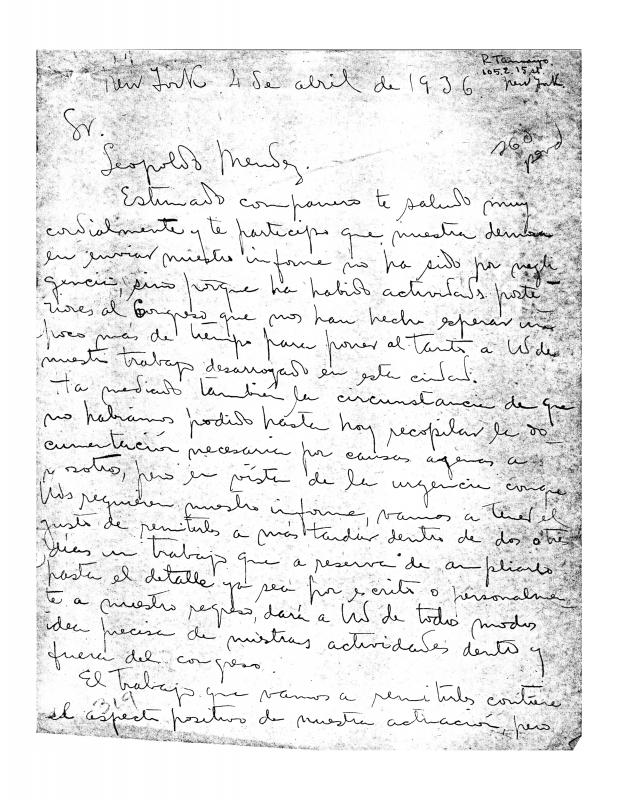 R. Tamayo
105 E. 15 st
New York.
New York 4 de abril de 1936
Sr.
Leopoldo Mendez.
Estimado companero te saludo muy
cordialmente y te participo que nuestra demora
en enviar nuestro informe no ha sido por negli
gencia, sino porque ha habido actividades poste
riores al Congreso que nos han hecho esperar un
poco más de tiempo para poner al tanto a Uds de
nuestro trabajo desarrogado en esta ciudad.
Ha mediado también la circunstancia de que
no habiamos podido hasta hoy recopilar la do-
cumentación necesaria por causas agenas a
nosotros, pero en vista de la urgencia conque
Uds requieren nuestro informe, vamos a tener el
gusto de remitirles a más tardar dentro de dos o tres
días un trabajo que a reserva de ampliarlo
hasta el detalle ya sea por escrito o personalmen
te a nuestro regreso, dará a Uds de todos modos
idea precisa de nuestras actividades dentro y
fuera del congreso.
El trabajo que vamos a remitirles contiene
319
el aspecto positivo de nuestra actuación, pero